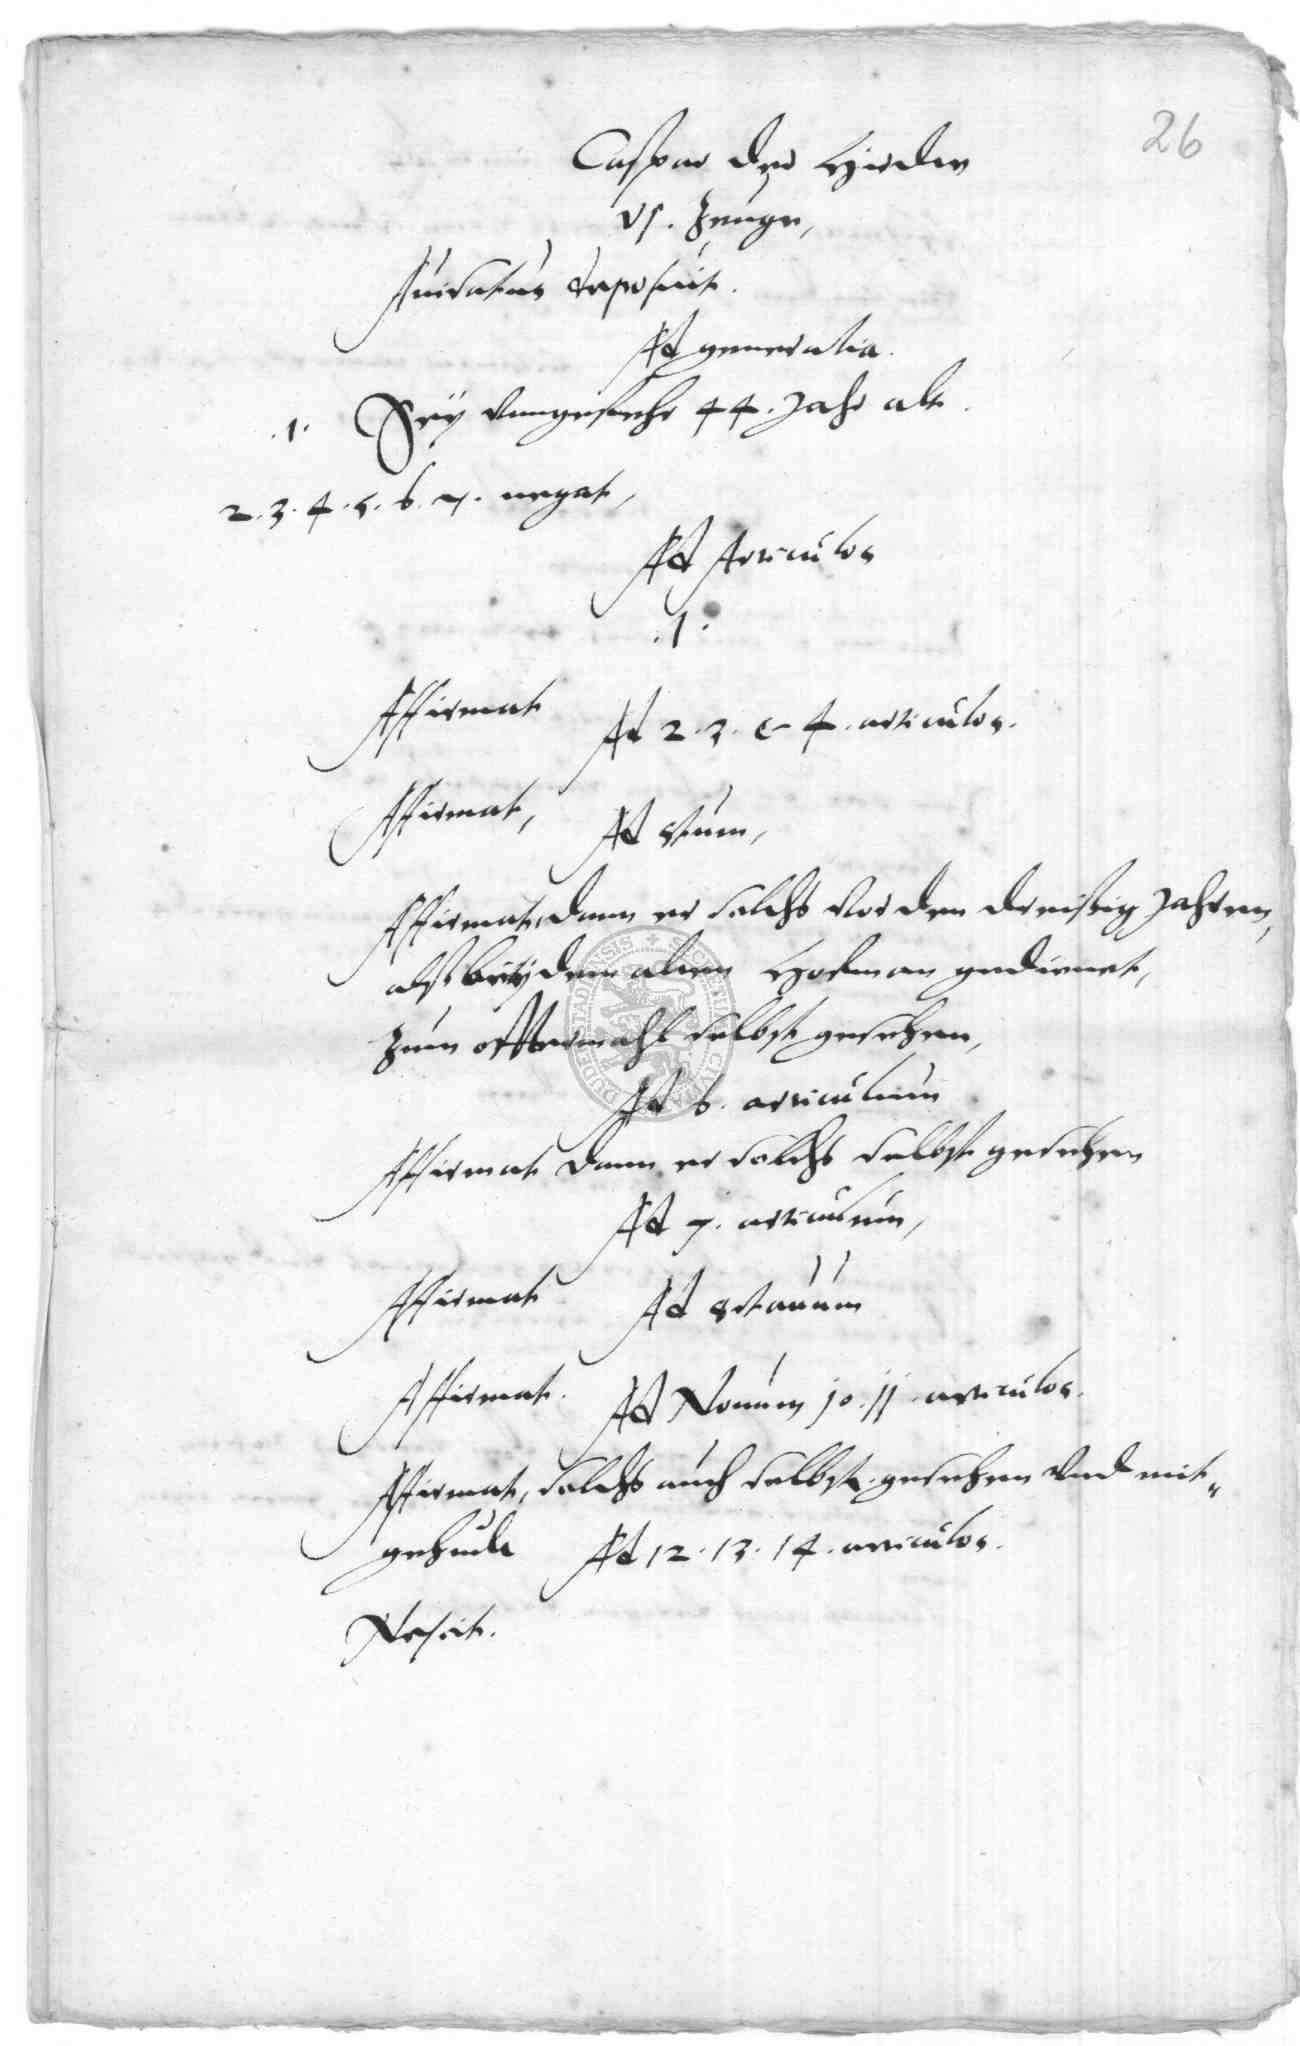 26
Caspar der Hirder
VI. Zeuge,
Juratus deposuit.
Ad generalia.
.1. Sey vungefehr 44. Jahr alt.
2. 3. 4. 5. 6. 7. negat,
Ad Articulos
.1.
Affirmat
Ad 2. 3. & 4. articulos.
Affirmat,
Ad 5tum,
Affirmat, dann er solchs vor den dreissig Jahren,
alß bey dem alten Hofman gedienet,
zum offtermahl selbst gesehen,
Ad 6. articulum
Affirmat dann er solchs selbst gesehen
Ad 7. articulum,
Affirmat
Ad octauum
Affirmat.
Ad Nonum 10. 11 articulos.
Affirmat, solchs auch selbst gesehen vnd mit„
gehuet
Ad 12. 13. 14. articulos.
Nescit.